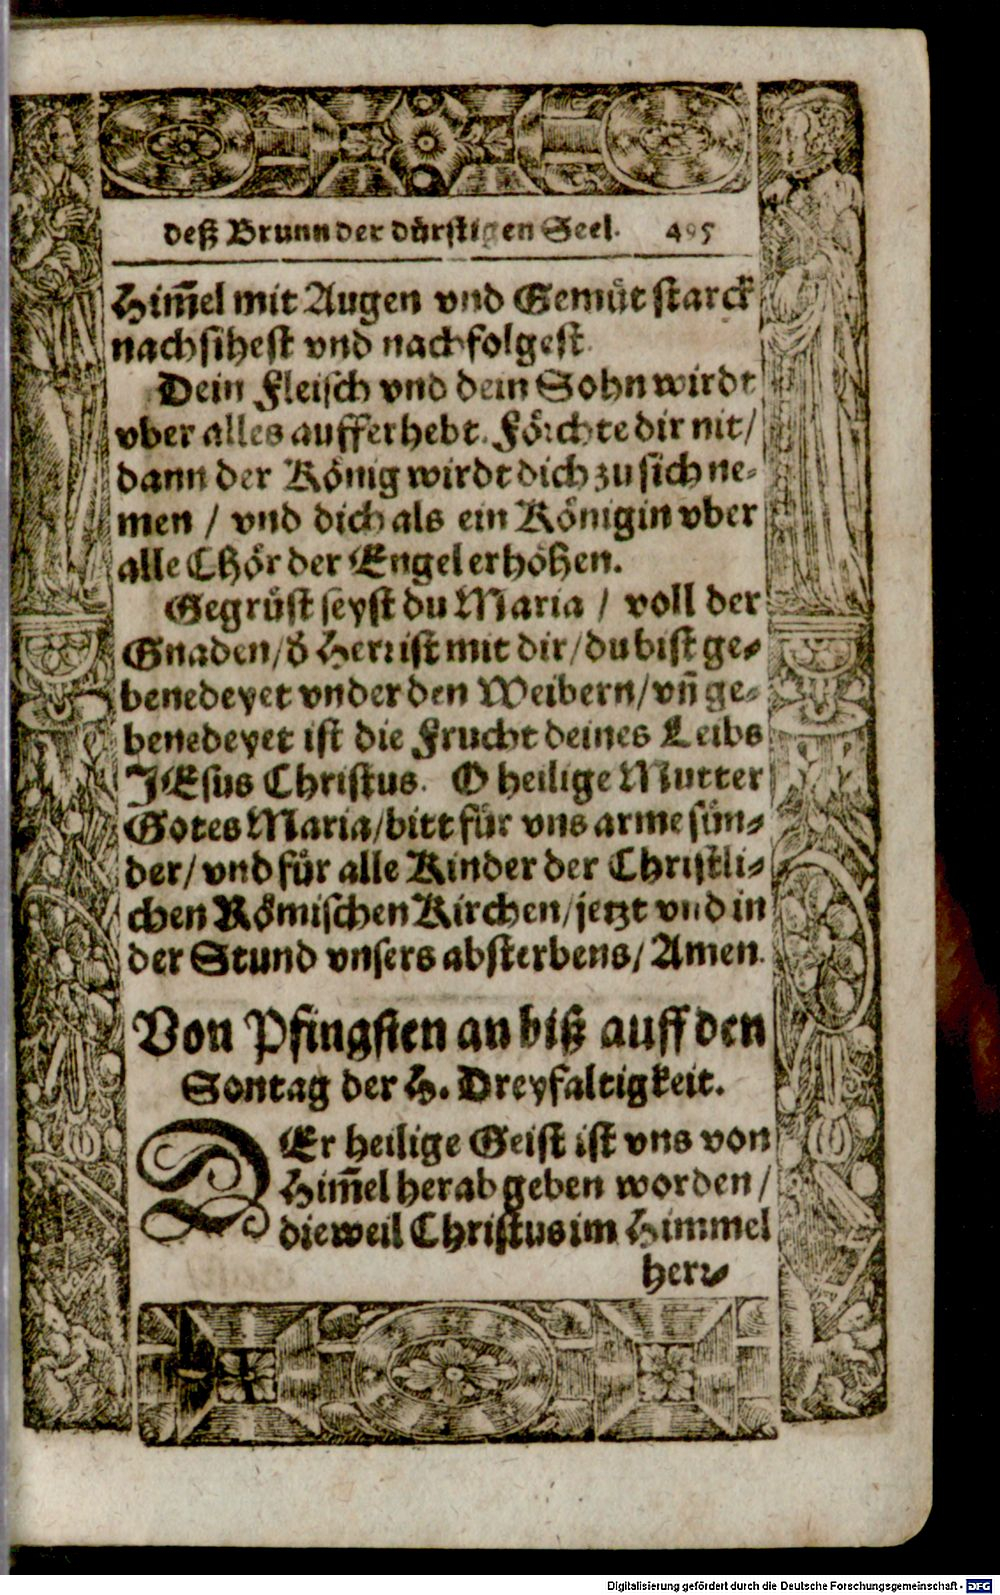 deß Brunn der dürstigen Seel. 495
Him̃el mit Augen vnd Gemüt starck
nachsihest vnd nachfolgest.
Dein Fleisch vnd dein Sohn wirdt
vber alles aufferhebt. Förchte dir nit/
dann der König wirdt dich zu sich ne-
men / vnd dich als ein Königin vber
alle Chör der Engel erhöhen.
Gegrüst seyst du Maria / voll der
Gnaden/ d̕ Herr ist mit dir/ du bist ge-
benedeyet vnder den Weibern/ vn̄ ge-
benedeyet ist die Frucht deines Leibs
JEsus Christus. O heilige Mutter
Gotes Maria/ bitt für vns arme sün-
der/ vnd für alle Kinder der Christli-
chen Römischen Kirchen/ jetzt vnd in
der Stund vnsers absterbens/ Amen.
Von Pfingsten an biß auff den
Sontag der H. Dreyfaltigkeit.
DEr heilige Geist ist vns von
Him̃el herab geben worden /
dieweil Christus im Himmel
herr-
Digitalisierung gefördert durch die Deutsche Forschungsgemeinschaft - DFG